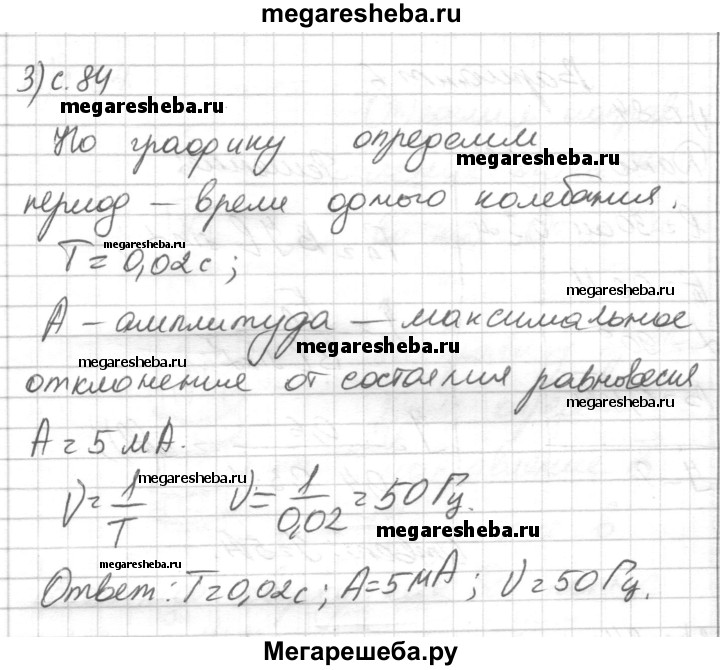 megaresheba.ru
3) с. 84
megaresheba.ru
По графику определим
megaresheba.ru
период – время одного колебания.
megaresheba.ru
T = 0,02 с ;
megaresheba.ru
A – амплитуда – максимальное
megaresheba.ru
megaresheba.ru
отклонение от состояния равновесия
megaresheba.ru
A = 5 мА.
megaresheba.ru
ν = 1/T ν = 1/0,02 = 50 Гц.
megaresheba.ru
megaresheba.ru
Ответ: T = 0,02 с ; A = 5 мА ; ν = 50 Гц.
Мегарешеба.ру